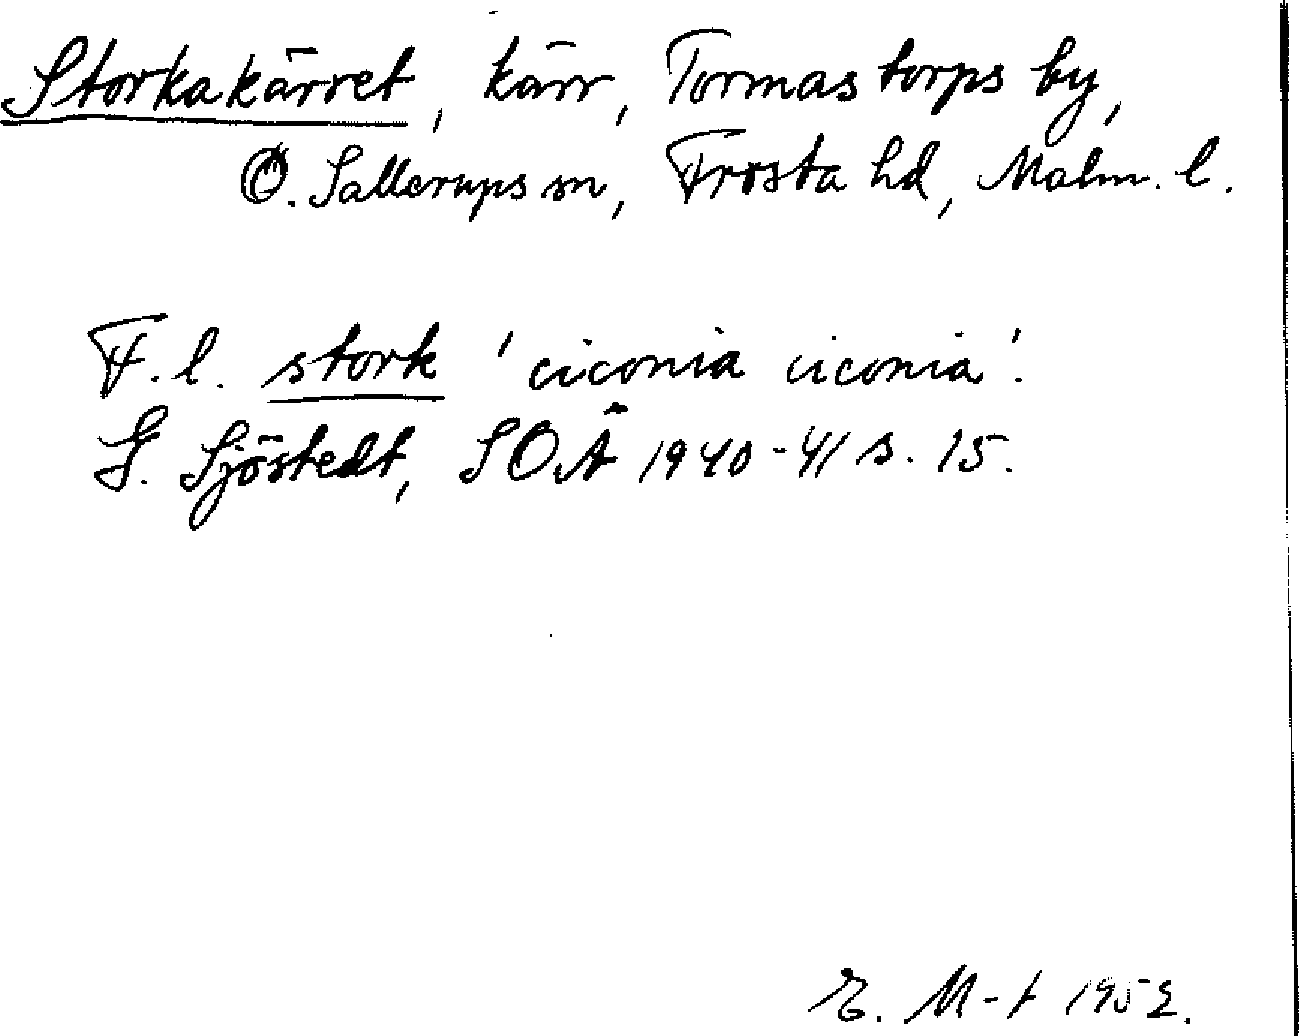 Storkakärret, kärr, Tormastorps by,
Ö. Sallerups sn, Frosta hd, Malm. l.
F. l. stork 'ciconia ciconia'.
G. Sjöstedt, SOÅ 1940-41 s. 15.
E. M-t 1952.